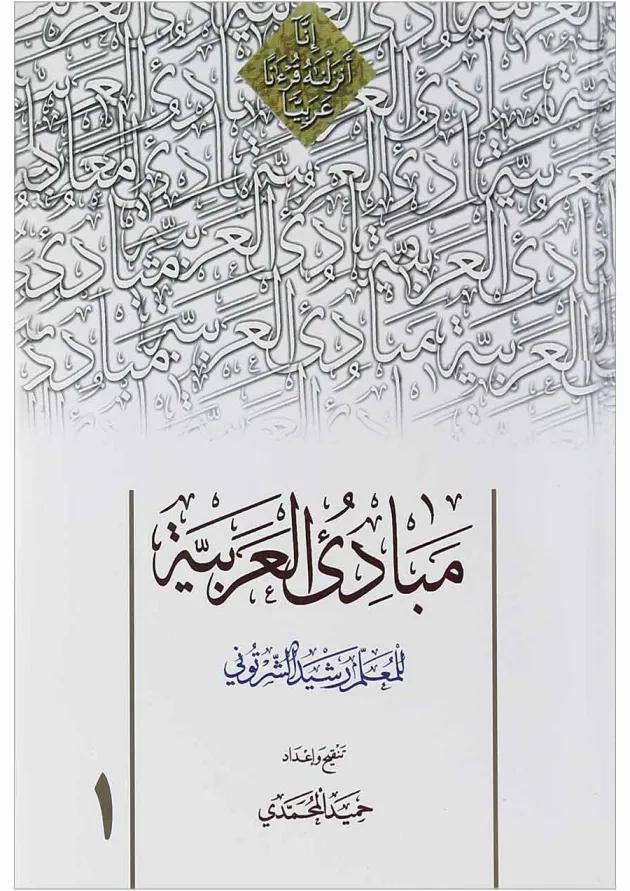 إِنَّآ
أَنزَلْنَٰهُ قُرْءَٰنًا
عَرَبِيًّا
مَبَادِئُ العَرَبيَّة
للمُعَلّم رَشيد الشّرتُوني
تَنْقيح وَإعْدَاد
حميد المُحَمَّدي
١